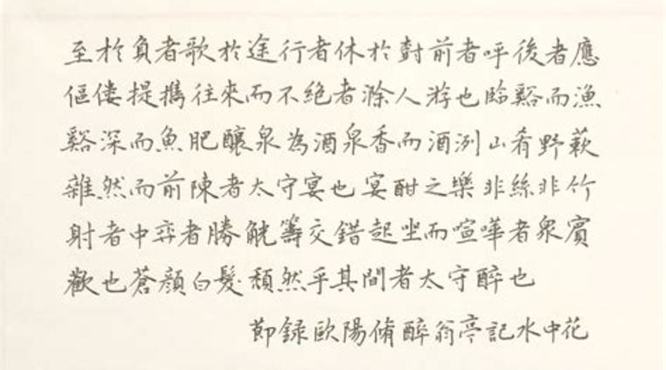 至於負者歌於途行者休於樹前者呼後者應
傴僂提攜往來而不絕者滁人游也臨谿而漁
谿深而魚肥釀泉為酒泉香而酒洌山肴野蔌
雜然而前陳者太守宴也宴酣之樂非絲非竹
射者中弈者勝觥籌交錯起坐而喧嘩者眾賓
歡也蒼顏白髮頹然乎其間者太守醉也
節録歐陽脩醉翁亭記水中花